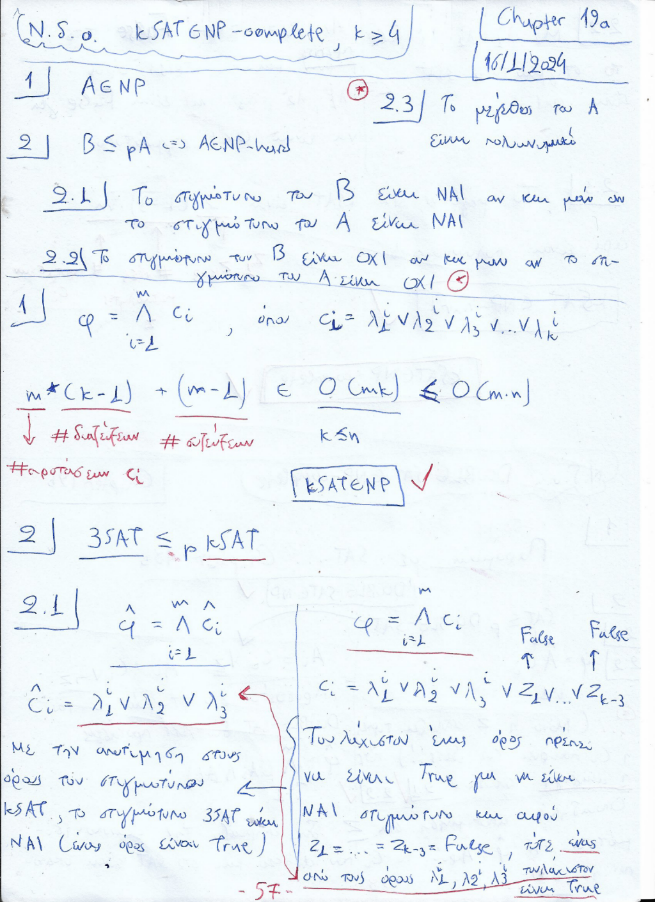 N.δ.ο. kSAT∈NP-complete, k ≥ 4
Chapter 19a
16/1/2024
1 A∈NP
2 B ≤p A ⇔ A∈NP-hard
* 2.3 Το μέγεθος του Α
είναι πολυωνυμικό
2.1 Το στιγμιότυπο του Β είναι ΝΑΙ αν και μόν αν
το στιγμιότυπο του Α είναι ΝΑΙ
2.2 Το στιγμιότυπο του Β είναι ΟΧΙ αν και μόνο αν το στι-
γμιότυπο του Α είναι ΟΧΙ *
1 φ = ⋀ᵢ₌₁ᵐ Cᵢ , όπου Cᵢ = λ₁ⁱ ∨ λ₂ⁱ ∨ λ₃ⁱ ∨ ... ∨ λₖⁱ
m*(k-1) + (m-1) ∈ O(mk) ≤ O(m·n)
#διαζεύξεων #συζεύξεων k≤n
#προτάσεων Cᵢ
kSAT∈NP ✓
2 3SAT ≤p kSAT
2.1 φ̂ = ⋀ᵢ₌₁ᵐ Ĉᵢ
Ĉᵢ = λ₁ⁱ ∨ λ₂ⁱ ∨ λ₃ⁱ
Με την αποτίμηση στους
όρους του στιγμιότυπου
kSAT, το στιγμιότυπο 3SAT είναι
ΝΑΙ (ένας όρος είναι True)
φ = ⋀ᵢ₌₁ᵐ Cᵢ
False False
↑ ↑
Cᵢ = λ₁ⁱ ∨ λ₂ⁱ ∨ λ₃ⁱ ∨ Z₁ ∨ ... ∨ Zₖ₋₃
Τουλάχιστον ένας όρος πρέπει
να είναι True για να είναι
ΝΑΙ στιγμιότυπο και αφού
Z₁ = ... = Zₖ₋₃ = False, τότε ένας
από τους όρους λ₁ⁱ, λ₂ⁱ, λ₃ⁱ τουλάχιστον
είναι True
- 57 -